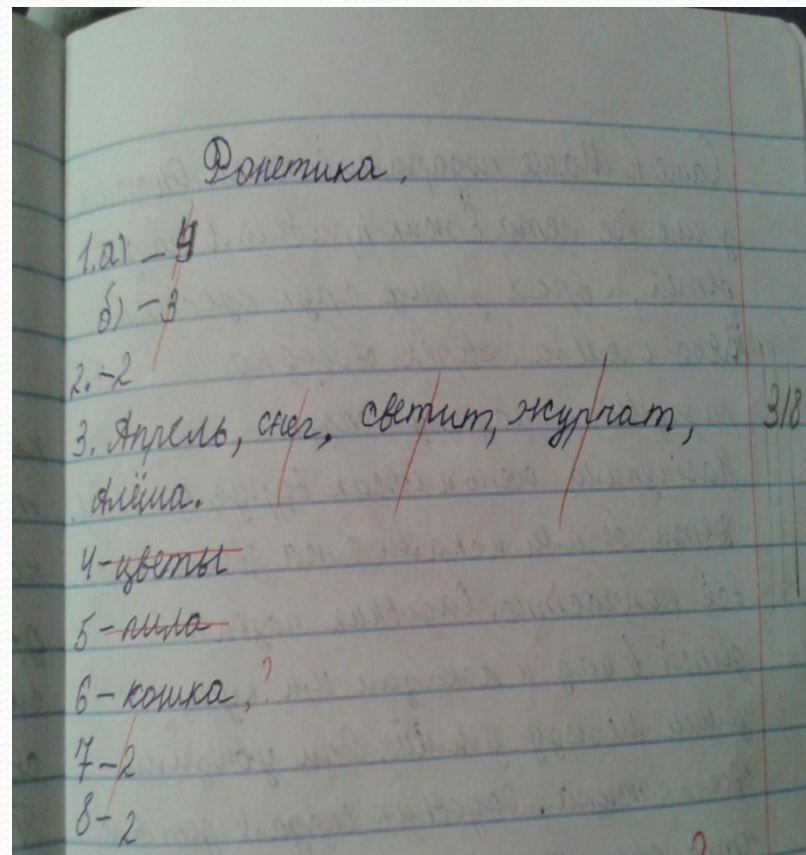 Фонетика.
1. а) – 4
б) – 3
2. – 2
3. Апрель, снег, светит, журчат, 3/8
Алёша.
4 – цветы
5 – пила
6 – кошка, ?
7 – 2
8 – 2
?